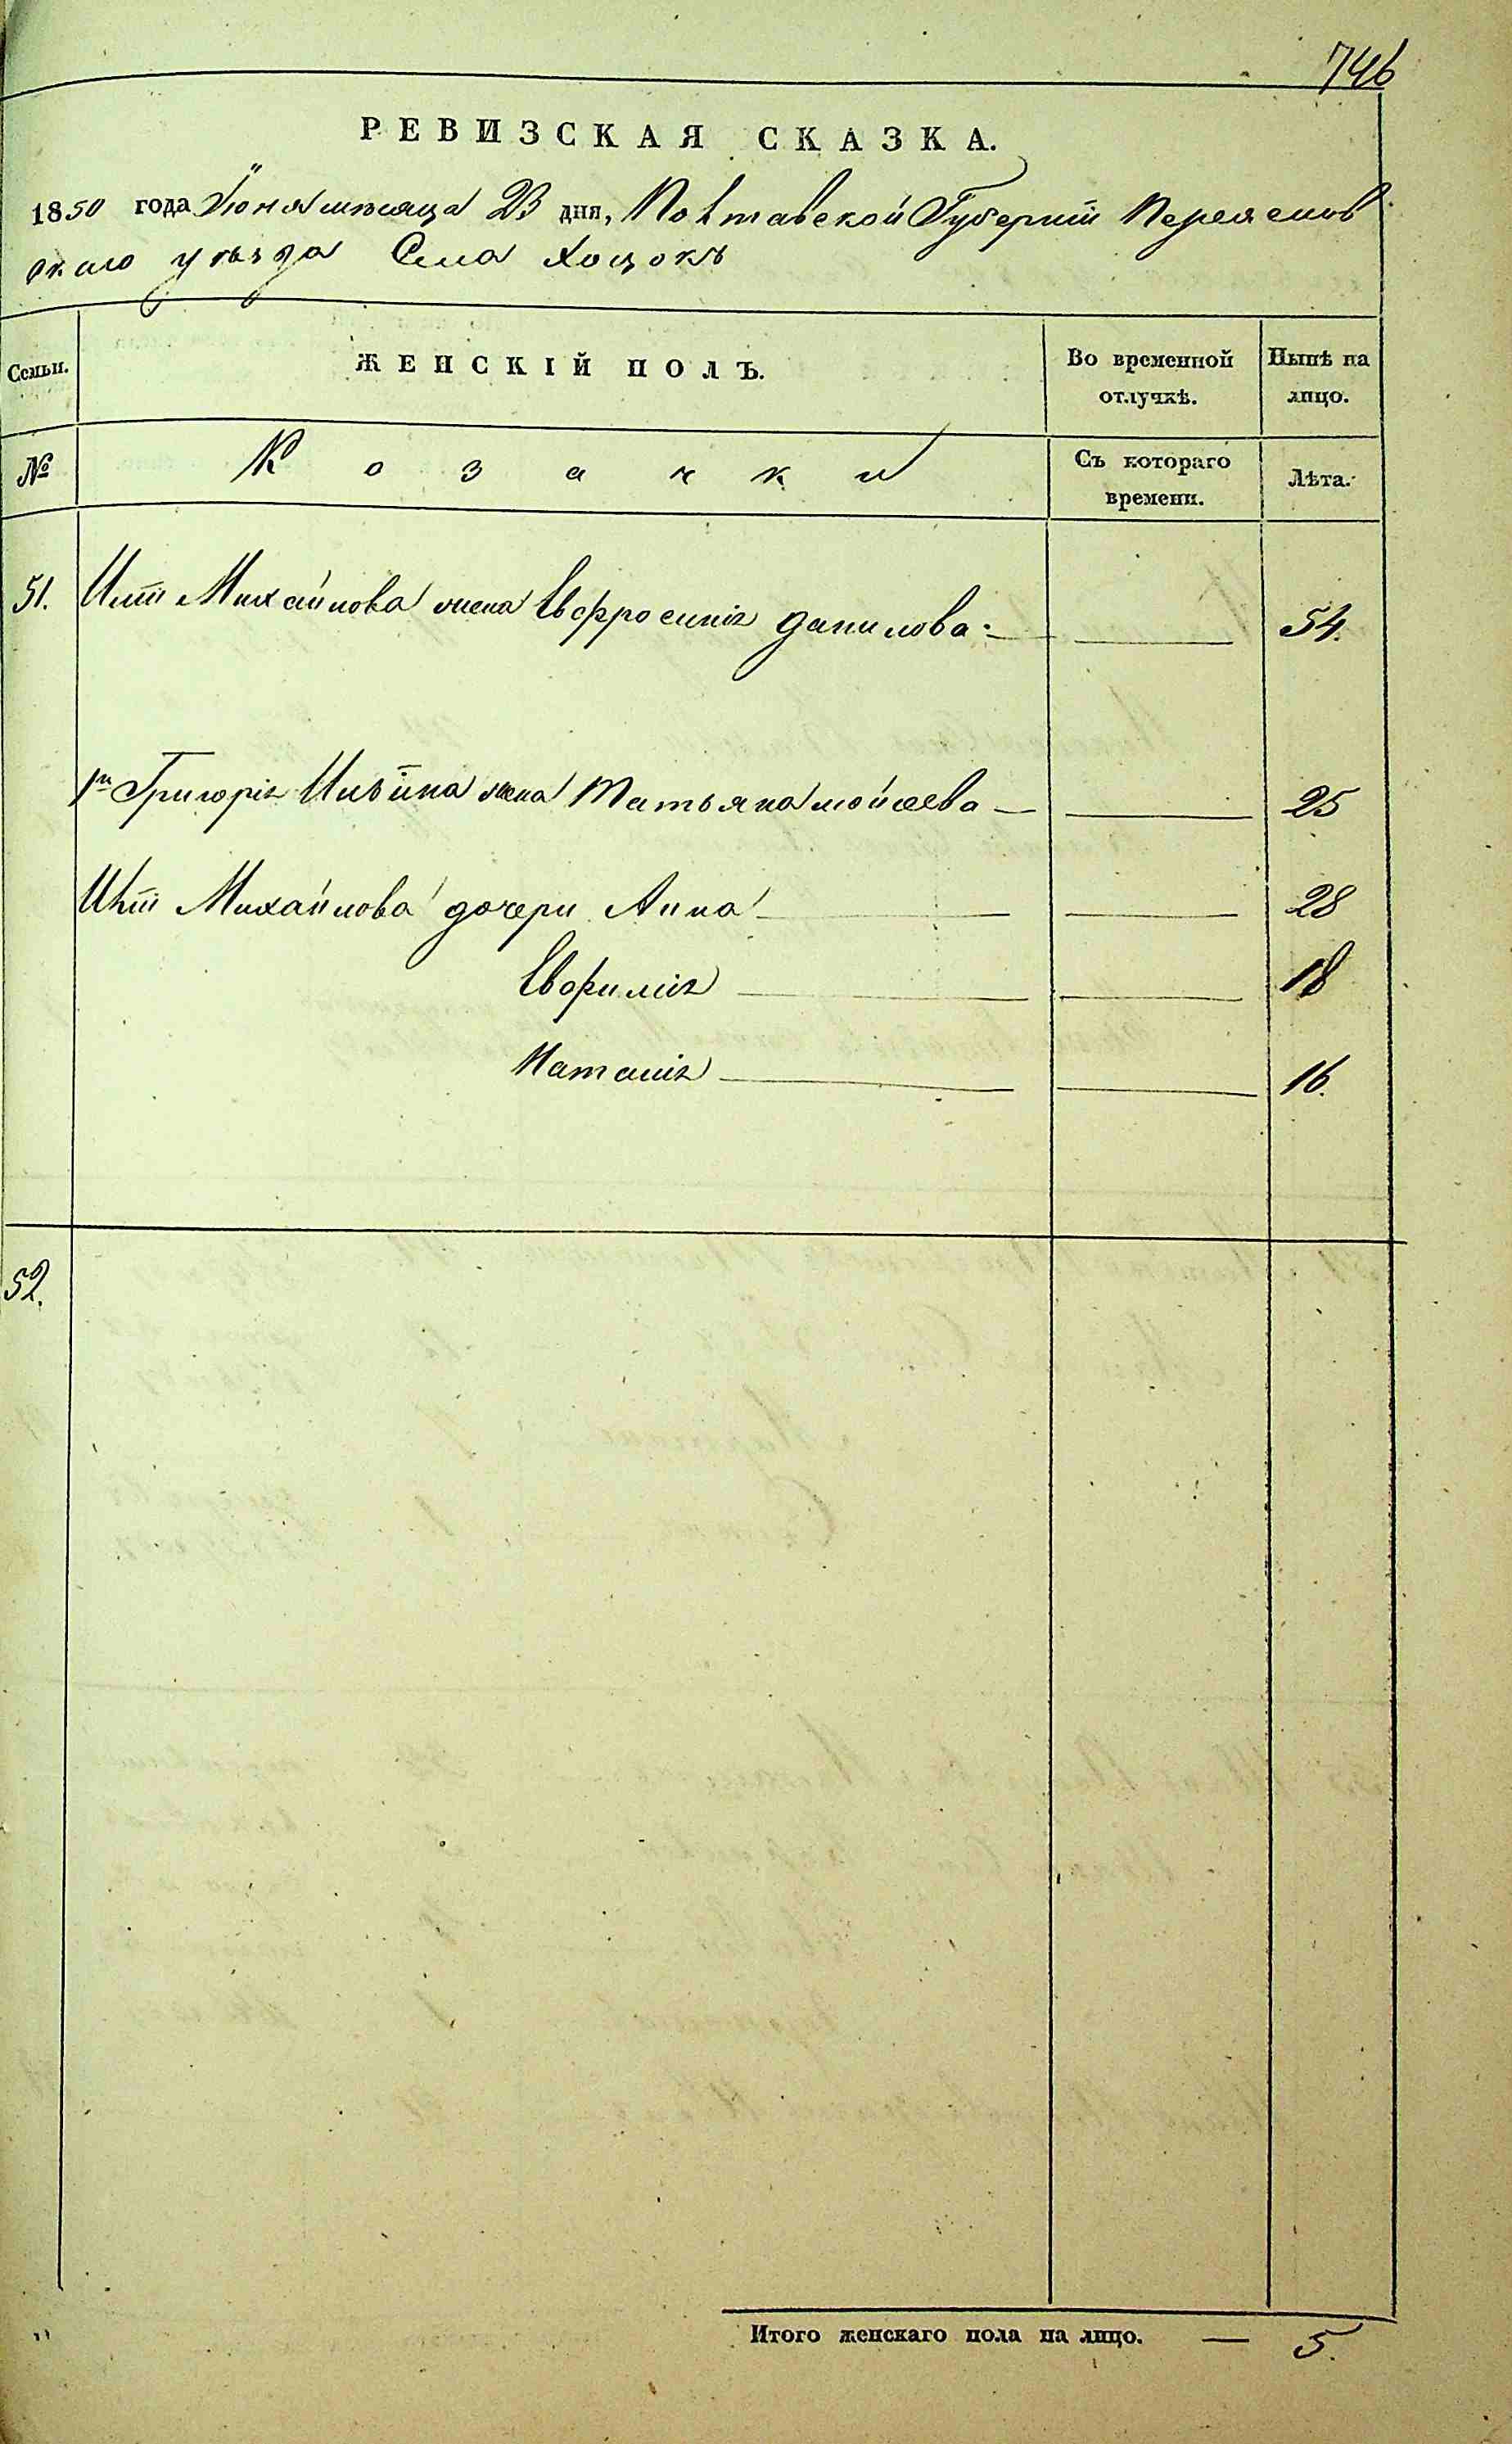 746
РЕВИЗСКАЯ СКАЗКА.
1850 года Іюня мѣсяца 23 дня, Полтавской Губерніи Переяслов
скаго уѣзда Села Хоцокъ
Семьи. ЖЕНСКІЙ ПОЛЪ. Во временной отлучкѣ. Нынѣ на лицо.
№ Козачки Съ котораго времени. Лѣта.
51. Иліи Михайлова жена Евфросинія Данилова 54.
Григорія Ильина жена Татьяна Мойсеева 25
Иліи Михайлова дочери Анна 28
Евфимія 18
Наталія 16.
52.
Итого женскаго пола на лицо. — 5.